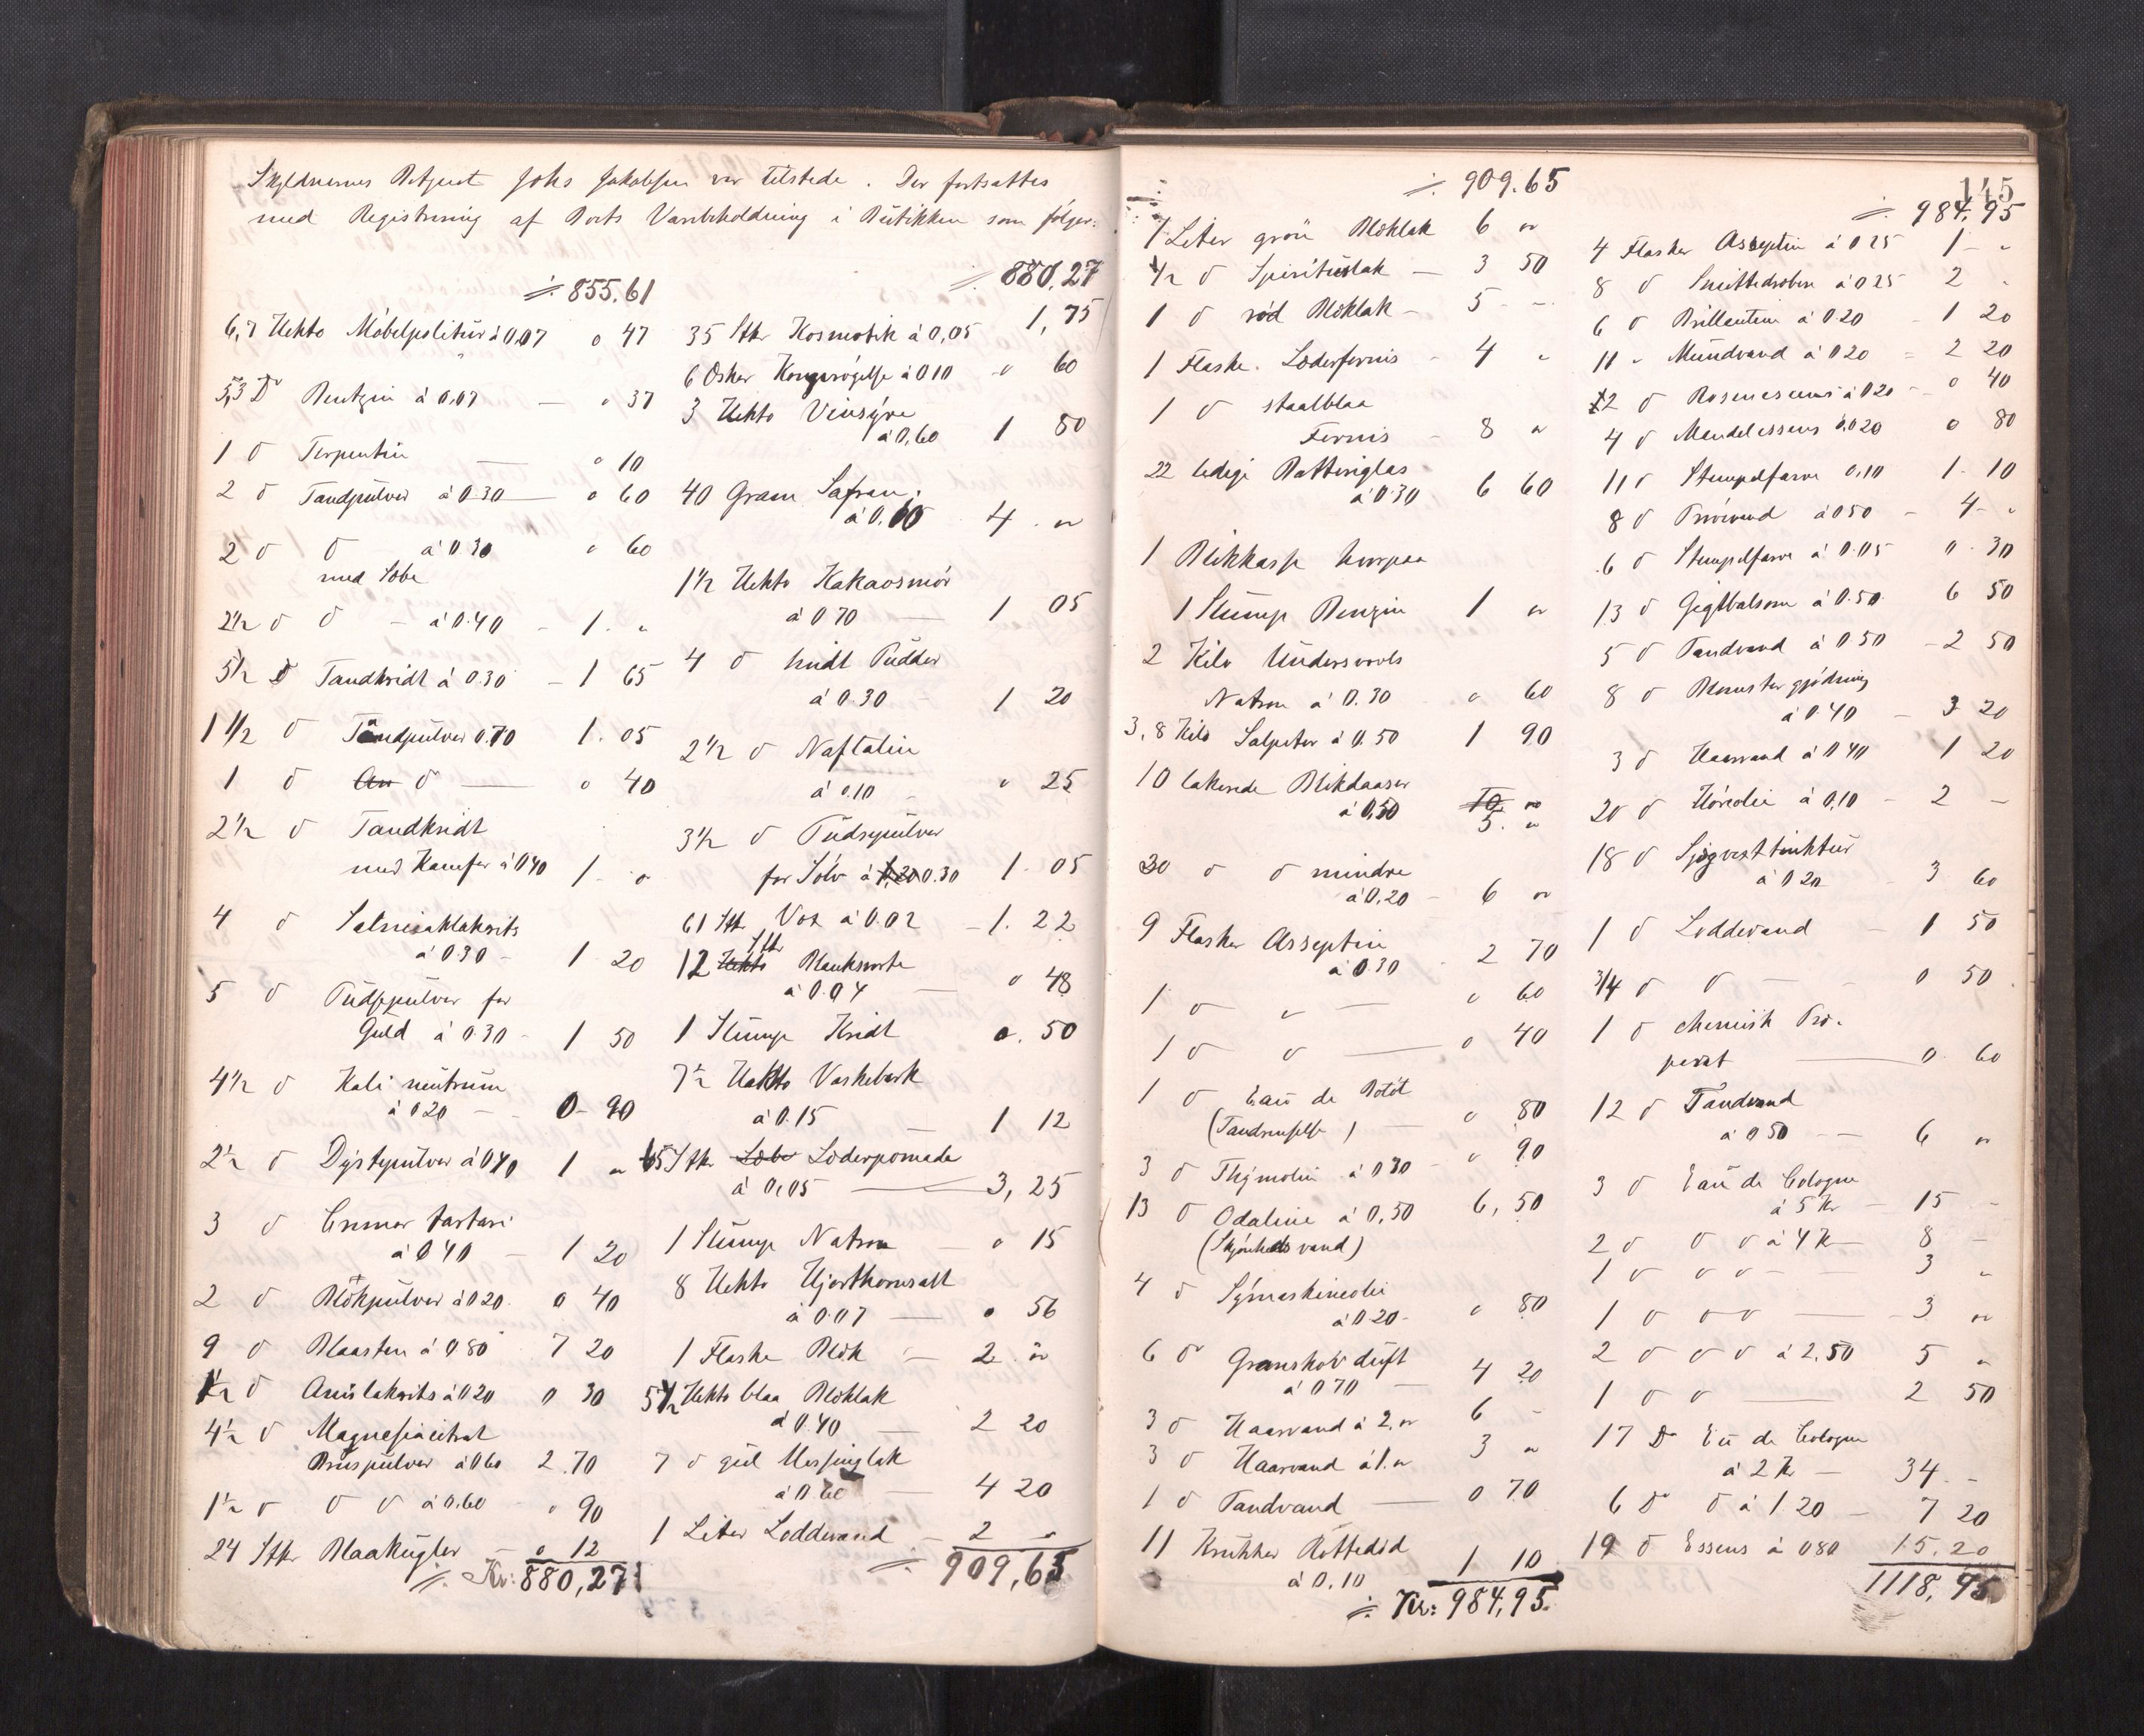 Skyldnerens Betjent Johs Jakobsen var tilstede. Der fortsattes
med Registrering af Boets Varebeholdning i Butikken som følger:
÷ 855.61
6,7 Hekto Möbelpolitur à 0,07 0 47
5,3 D Bentzin à 0,07 — 0 37
1 d Terpentin — 0 10
2 d Tandpulver à 0.30 — 0 60
2 d d à 0.30 0 60
med Sæbe
2½ d d - à 0.40 - 1. "
5½ d Tandkridt à 0.30 - 1 65
1 1/2 d Tandpulver 0.70 1. 05
1 d d — 0 40
2½ d Tandkridt
med Kamfer à 0.40 1 - 0
4 d Salmiaklakrits
à 0.30 - 1 20
5 d Pudspulver for
Guld à 0.30 - 1 50
4½ d Kali neutrum
à 0.20 - 0 - 90
2½ d Dyrlepulver à 0.40 1 "
3 d Cremor tartari
à 0.40 - 1 20
2 d Blökpulver à 0.20 0 40
9 d Blaasten à 0.80 7 20
1½ d Anislakrits à 0.20 0 30
4½ d Magnesiacitrat
Bruspulver à 0.60 2.70
1½ d d d à 0.60 0 90
24 Stkr Blaakugler - 0 12
÷ Kr: 880,27
÷ 880,27
35 Stkr Kosmotik à 0,05 1,75
6 Esker Kongerögelse à 0.10 0 60
3 Hekto Vinsyre
à 0,60 1 80
40 Gram Safran
à 0.10 4. "
1½ Hekto Kakaosmör
à 0.70 1 05
4 d hvidt Pudder
à 0.30 - 1 20
2½ d Naftalin
à 0.10 - 0 25
3½ d Pudsepulver
for Sölv à 1,20 0.30 1. 05
61 Stk Vox à 0.02 - 1. 22
12 Hekto Stkr Blanksverte
à 0.04 — 0 48
1 Slump Kridt 0. 50
7½ Hekto Vaskebark
à 0.15 — 1 12
65 Stkr Læbe Læderpomade
à 0,05 — 3,25
1 Slump Natron — 0 15
8 Hekto Hjorthornsalt
à 0.07 — 0 56
1 Flaske Blök — 2 "
5½ Hekto blaa Blöklak
à 0.40 — 2 20
7 d gul Messinglak
à 0.60 — 4 20
1 Liter Loddevand - 2 "
÷ 909,65
÷ 909.65
1 Liter grön Blöklak 6 "
1/2 d Spirituslak — 3 50
1 d röd Blöklak - 5 -
1 Flaske Læderfernis - 4 "
1 d staalblaa
Fernis - 8 "
22 ledige Batteriglas
à 0.30 6 60
1 Blikkasse hvorpaa
1 Slump Benzin 1 "
2 Kilo Undersvovls
Natron à 0.30 0 60
3,8 Kilo Salpeter à 0.50 1 90
10 lakerede Blikdaaser
à 0,50 10 "
5. "
30 d d mindre
à 0,20 - 6 "
9 Flasker Asseptin
à 0.30 - 2 70
1 d " — 0 60
1 d d — 0 40
1 d Eau de Botôt
(Tandrenselse) — 0 80
3 d Thymolin à 0.30 - 0 90
13 d Odaline à 0,50 6,50
(Skjönhedsvand)
4 d Symaskineolie
à 0.20 - 0 80
6 d Granskov duft
à 0.70 — 4 20
3 d Haarvand à 2." 6 -
3 d Haarvand à 1." 3 "
1 d Tandvand — 0 70
11 Krukker Rottedöd
à 0,10 1 10
÷ Kr: 984,95.
145
÷ 984,95
4 Flasker Asseptin à 0.25 1 - "
8 d Smittedraber à 0.25 2 "
6 d Brillantin à 0.20 - 1 20
11 " Mundvand à 0.20 - 2 20
2 d Rosenessens à 0.20 - 0 40
4 d Mandelessens à 0.20 0 80
11 d Stempelfarve 0,10 1. 10
8 d Prövevand à 0.50 - 4 - "
6 d Stempelfarve à 0.05 0. 30
13 d Gigtbalsom à 0.50 6 50
5 d Tandvand à 0.50 - 2 50
8 d Blomstergjödning
à 0.40 - 3 20
3 d Haarvand à 0.40 1 20
20 d Hörolie à 0,10 - 2 -
18 d Sjögresstinktur
à 0.20 3 60
1 d Loddevand - 1 50
3/4 d d — 0 50
1 d chemisk Præ-
perat — 0. 60
12 d Tandvand
à 0.50 — 6 "
3 d Eau de Cologne
à 5 Kr - 15 -
2 d d d à 4 Kr 8 -
1 d d d — 3 "
1 d d d — 3 "
2 d d d à 2,50 5 "
1 d d — 2 50
17 D Eu de Cologne
à 2 Kr - 34. -
6 D d à 1.20 - 7 20
19 d Essens à 0.80 15.20
1118,95